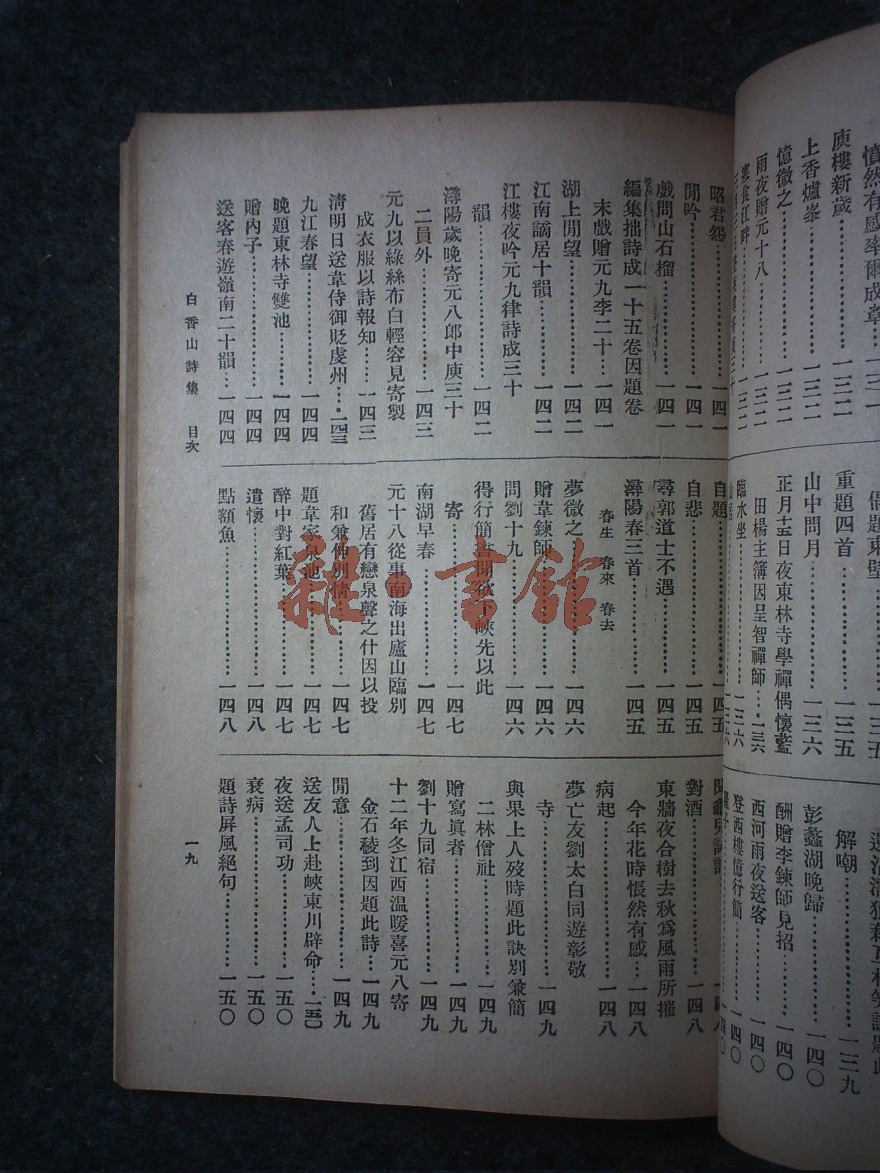 憤然有感率爾成章……一三一
庾樓新歲……一三二
上香爐峯……一三二
憶微之……一三二
雨夜贈元十八……一三二
寒食江畔……一三二
偶題東壁……一三五
重題四首……一三五
山中問月……一三六
正月十五日夜東林寺學禪偶懷藍
田楊主簿因呈智禪師…一三六
臨水坐……一三六
解嘲……一三九
彭蠡湖晚歸……一四〇
酬贈李鍊師見招……一四〇
西河雨夜送客……一四〇
登西樓憶行簡……一四〇
昭君怨……一四一
閒吟……一四一
戲問山石榴……一四一
編集拙詩成一十五卷因題卷
末戲贈元九李二十……一四一
湖上閒望……一四二
江南謫居十韻……一四二
江樓夜吟元九律詩成三十
韻……一四二
潯陽歲晚寄元八郎中庾三十
二員外……一四三
元九以綠絲布白輕容見寄製
成衣服以詩報知……一四三
清明日送韋侍御貶虔州…一四三
九江春望……一四四
晚題東林寺雙池……一四四
贈內子……一四四
送客春遊嶺南二十韻…一四四
自題……一四五
自悲……一四五
尋郭道士不遇……一四五
潯陽春三首……一四五
春生 春來 春去
夢微之……一四六
贈韋鍊師……一四六
問劉十九……一四六
得行簡書聞欲下峽先以此
寄……一四七
南湖早春……一四七
元十八從事南海出廬山臨別
舊居有戀泉聲之什因以投
和兼伸別情……一四七
題韋家泉池……一四七
醉中對紅葉……一四七
遣懷……一四八
點額魚……一四八
對酒……一四八
東牆夜合樹去秋爲風雨所摧
今年花時悵然有感……一四八
病起……一四八
夢亡友劉太白同遊彰敬
寺……一四九
與果上人歿時題此訣別兼簡
二林僧社……一四九
贈寫眞者……一四九
劉十九同宿……一四九
十二年冬江西溫暖喜元八寄
金石稜到因題此詩…一四九
閒意……一四九
送友人上赴峽東川辟命…一五〇
夜送孟司功……一五〇
衰病……一五〇
題詩屏風絕句……一五〇
白香山詩集 目次
一九
雜·書館